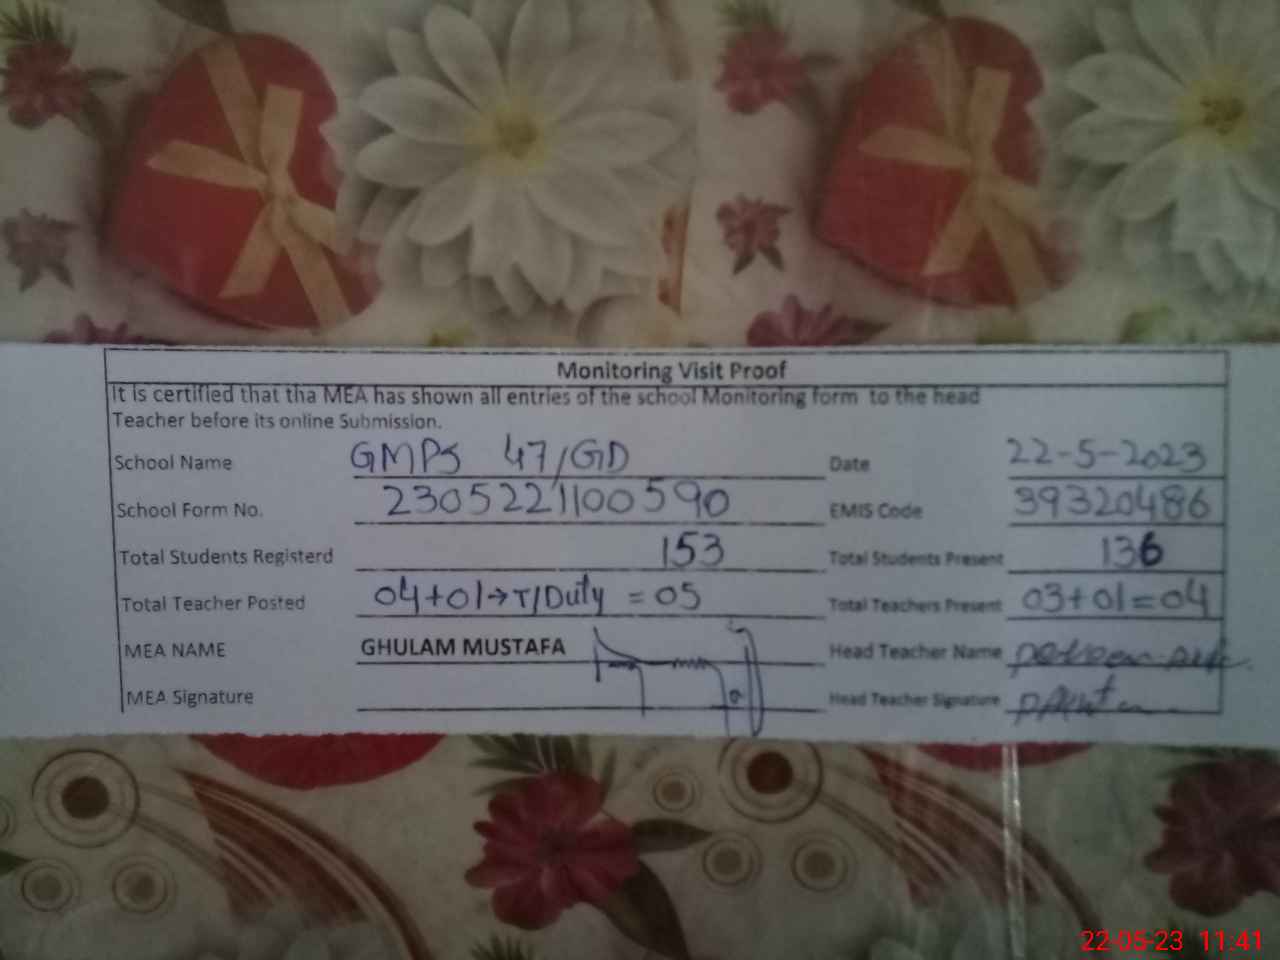 Monitoring Visit Proof
It is certified that tha MEA has shown all entries of the school Monitoring form to the head
Teacher before its online Submission.
School Name GMPS 47/GD Date 22-5-2023
School Form No. 2305221100590 EMIS Code 39320486
Total Students Registerd 153 Total Students Present 136
Total Teacher Posted 04+01→T/Duty = 05 Total Teachers Present 03+01=04
MEA NAME GHULAM MUSTAFA Head Teacher Name
MEA Signature Head Teacher Signature
22-05-23 11:41